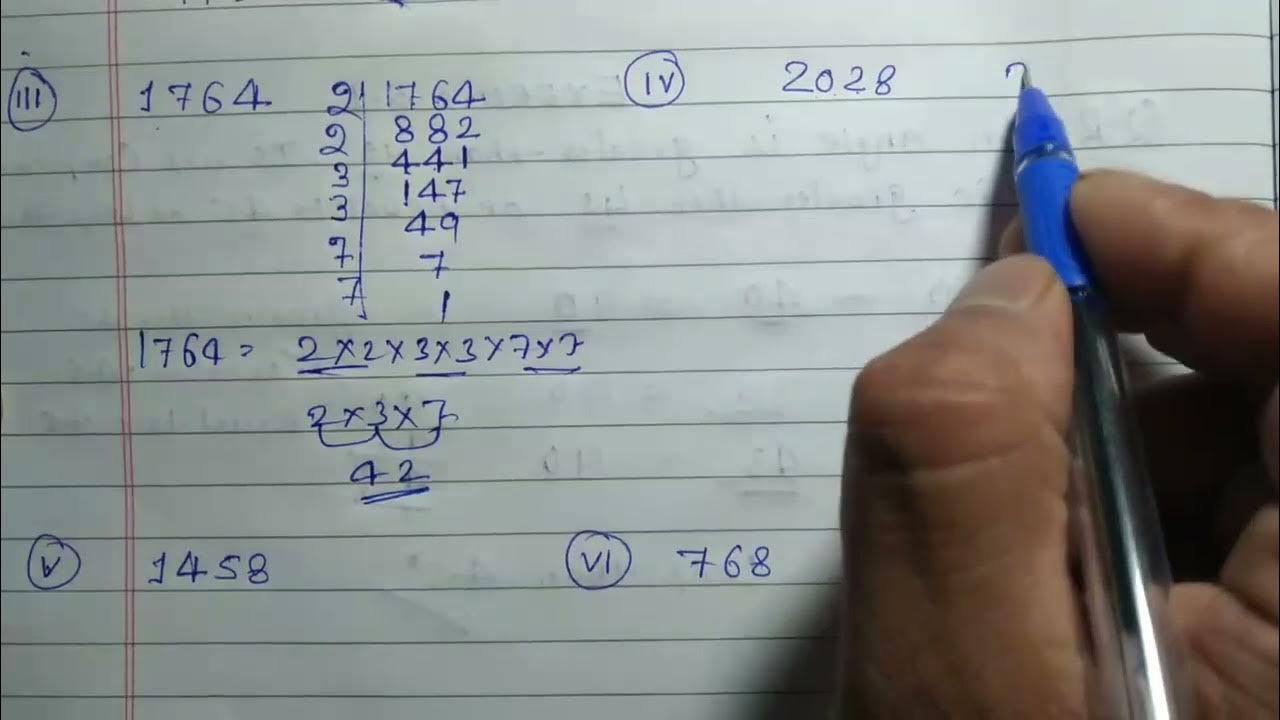 III 1764 2 1764
2 882
3 441
3 147
7 49
7 7
1
1764 = 2×2×3×3×7×7
2×3×7
42
IV 2028 2
V 1458
VI 768